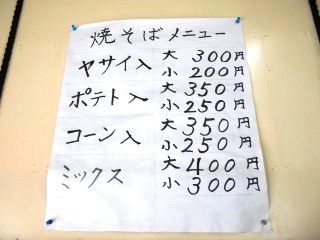 焼そばメニュー
ヤサイ入 大 300円
小 200円
ポテト入 大 350円
小 250円
コーン入 大 350円
小 250円
ミックス 大 400円
小 300円